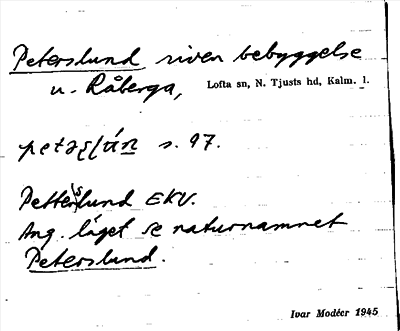 Peterslund riven bebyggelse
u. Råberga, Lofta sn, N. Tjusts hd, Kalm. l.
s. 97.
Petterslund EKV.
Ang. läget se naturnamnet
Peterslund.
Ivar Modéer 1945